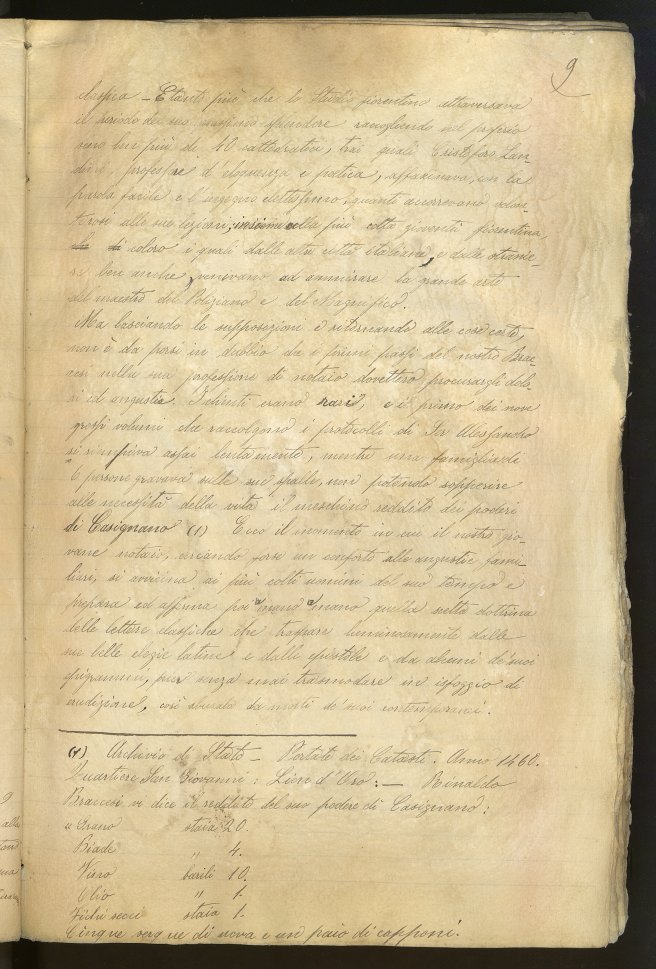 9
classica – E tanto più che lo Studio fiorentino attraversava
il periodo del suo massimo splendore raccogliendo nel proprio
seno ben più di 40 cattedratici, trai quali Cristoforo Lan-
dino, professore d'eloquenza e poetica, affascinava, con la
parola facile e l'ingegno elettissimo, quanti accorrevano volen-
terosi alle sue lezioni; insieme alla più colta gioventù fiorentina,
coloro i quali dalle altre città italiane, e dalle stranie-
re ben anche, venivano ad ammirare la grande arte
del maestro del Poliziano e del Magnifico.
Ma lasciando le supposizioni e ritornando alle cose certe,
non è da porsi in dubbio che i primi passi del nostro Brac-
cesi nella sua professione di notaio dovettero procurargli dolo-
ri ed angustie. I clienti erano rari, e il primo dei nove
grossi volumi che raccolgono i protocolli di Ser Alessandro
si riempiva assai lentamente, mentre una famiglia di
6 persone gravava sulle sue spalle, non potendo sopperire
alle necessità della vita il meschino reddito dei poderi
di Casignano (1) Ecco il momento in cui il nostro gio-
vane notaio, cercando forse un conforto alle angustie fami-
liari, si avvicina ai più colti uomini del suo tempo e
prepara ed affina poi a mano a mano quella scelta dottrina
delle lettere classiche che traspare luminosamente dalle
sue belle elegie latine e dalle epistole e da alcuni de' suoi
epigrammi, pur senza mai trasmodare in isfoggio di
erudizione, così abusato da molti de' suoi contemporanei.
(1) Archivio di Stato – Portate dei Catasti. Anno 1460.
Quartiere San Giovanni: Lion d'Oro: – Rinaldo
Braccesi vi dice il reddito del suo podere di Casignano:
" Grano staia 20.
Biade " 4.
Vino barili 10.
Olio " 1.
Fichi secchi staia 1.
Cinque serque di uova e un paio di capponi.